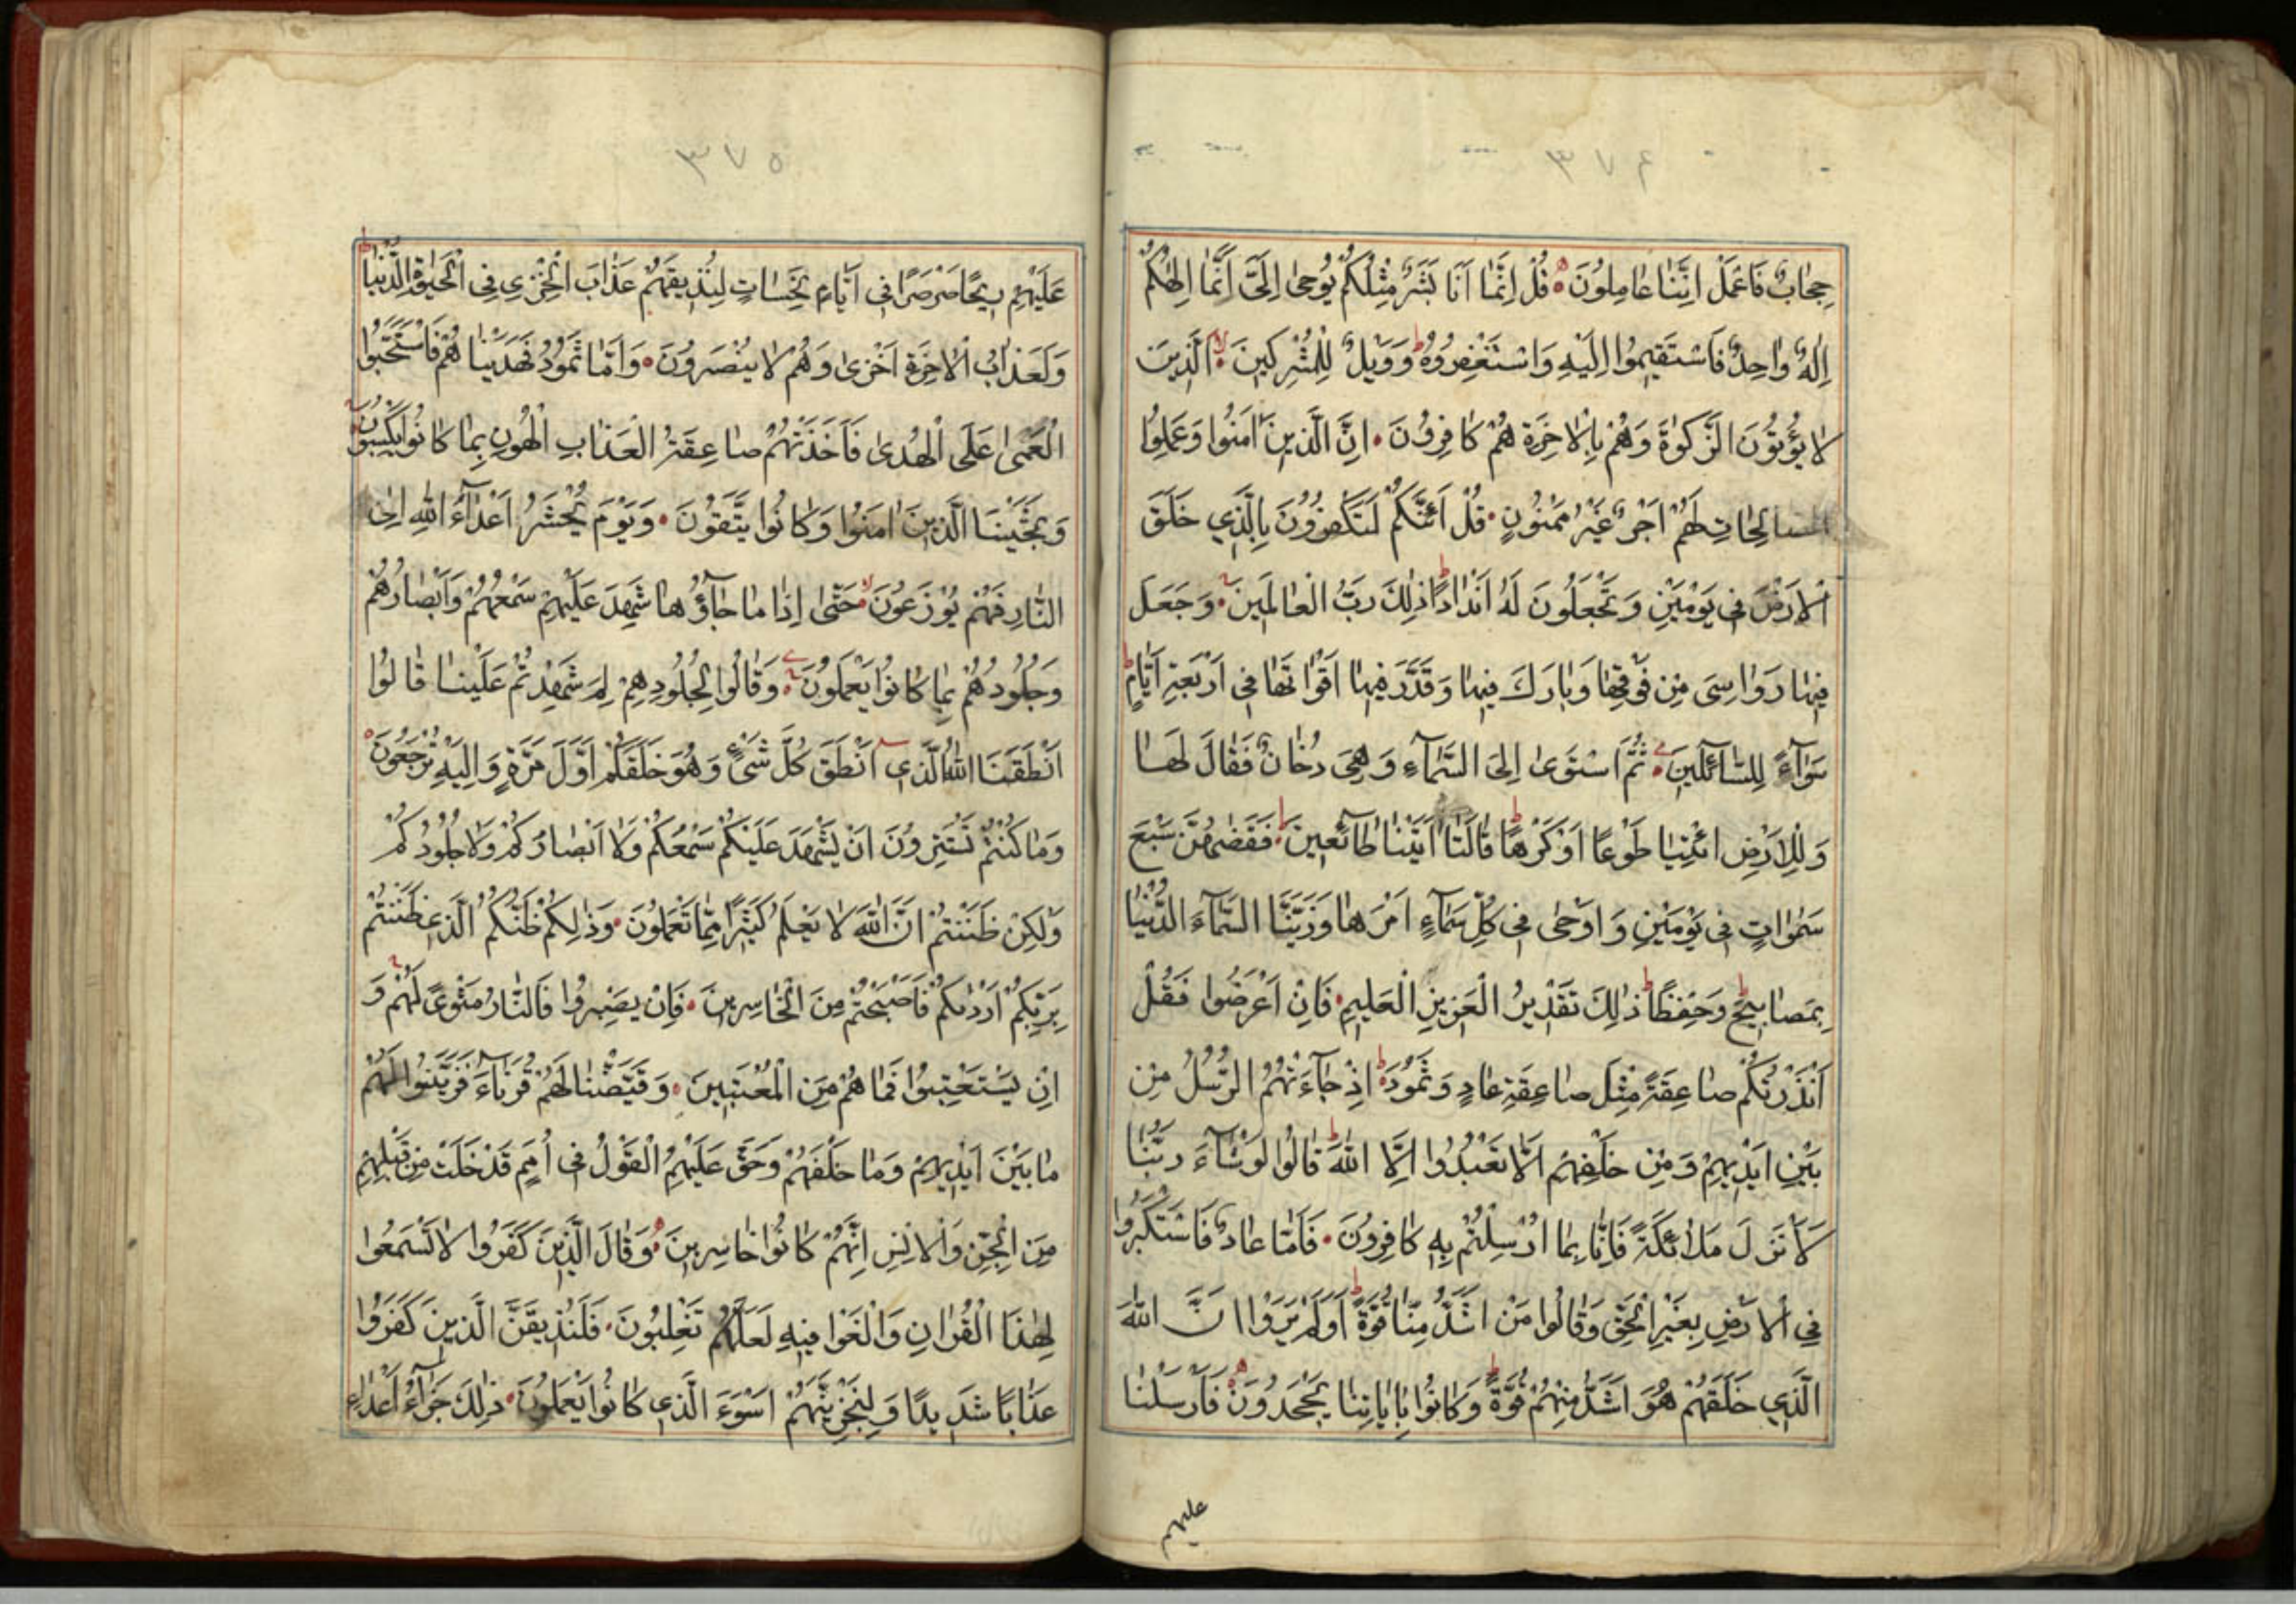 ۳۷۴
حِجَابٌ فَاعْمَلْ اِنَّنَا عَامِلُونَ ۝ قُلْ اِنَّمَا اَنَا بَشَرٌ مِثْلُكُمْ يُوحٰى اِلَىَّ اَنَّمَا اِلٰهُكُمْ
اِلٰهٌ وَاحِدٌ فَاسْتَقِيمُوا اِلَيْهِ وَاسْتَغْفِرُوهُ ط وَوَيْلٌ لِلْمُشْرِكِينَ ۝ لا الَّذِينَ
لَا يُؤْتُونَ الزَّكٰوةَ وَهُمْ بِالْاٰخِرَةِ هُمْ كَافِرُونَ ۝ اِنَّ الَّذِينَ اٰمَنُوا وَعَمِلُوا
الصَّالِحَاتِ لَهُمْ اَجْرٌ غَيْرُ مَمْنُونٍ ۝ قُلْ اَئِنَّكُمْ لَتَكْفُرُونَ بِالَّذِي خَلَقَ
الْاَرْضَ فِي يَوْمَيْنِ وَتَجْعَلُونَ لَهُ اَنْدَادًا ط ذٰلِكَ رَبُّ الْعَالَمِينَ ۝ وَجَعَلَ
فِيهَا رَوَاسِىَ مِنْ فَوْقِهَا وَبَارَكَ فِيهَا وَقَدَّرَ فِيهَا اَقْوَاتَهَا فِي اَرْبَعَةِ اَيَّامٍ ط
سَوَاۤءً لِلسَّاۤئِلِينَ ۝ ثُمَّ اسْتَوٰى اِلَى السَّمَاۤءِ وَهِىَ دُخَانٌ فَقَالَ لَهَا
وَلِلْاَرْضِ ائْتِيَا طَوْعًا اَوْ كَرْهًا ط قَالَتَا اَتَيْنَا طَاۤئِعِينَ ۝ فَقَضٰهُنَّ سَبْعَ
سَمٰوَاتٍ فِي يَوْمَيْنِ وَاَوْحٰى فِي كُلِّ سَمَاۤءٍ اَمْرَهَا وَزَيَّنَّا السَّمَاۤءَ الدُّنْيَا
بِمَصَابِيحَ وَحِفْظًا ط ذٰلِكَ تَقْدِيرُ الْعَزِيزِ الْعَلِيمِ ۝ فَاِنْ اَعْرَضُوا فَقُلْ
اَنْذَرْتُكُمْ صَاعِقَةً مِثْلَ صَاعِقَةِ عَادٍ وَثَمُودَ ۝ ط اِذْ جَاۤءَتْهُمُ الرُّسُلُ مِنْ
بَيْنِ اَيْدِيهِمْ وَمِنْ خَلْفِهِمْ اَلَّا تَعْبُدُوا اِلَّا اللّٰهَ ط قَالُوا لَوْ شَاۤءَ رَبُّنَا
لَاَنْزَلَ مَلٰۤئِكَةً فَاِنَّا بِمَا اُرْسِلْتُمْ بِهِ كَافِرُونَ ۝ فَاَمَّا عَادٌ فَاسْتَكْبَرُوا
فِي الْاَرْضِ بِغَيْرِ الْحَقِّ وَقَالُوا مَنْ اَشَدُّ مِنَّا قُوَّةً ط اَوَلَمْ يَرَوْا اَنَّ اللّٰهَ
الَّذِي خَلَقَهُمْ هُوَ اَشَدُّ مِنْهُمْ قُوَّةً ط وَكَانُوا بِاٰيَاتِنَا يَجْحَدُونَ ۝ فَاَرْسَلْنَا
عليهم
۳۷۵
عَلَيْهِمْ رِيحًا صَرْصَرًا فِي اَيَّامٍ نَحِسَاتٍ لِنُذِيقَهُمْ عَذَابَ الْخِزْيِ فِي الْحَيٰوةِ الدُّنْيَا ط
وَلَعَذَابُ الْاٰخِرَةِ اَخْزٰى وَهُمْ لَا يُنْصَرُونَ ۝ وَاَمَّا ثَمُودُ فَهَدَيْنَاهُمْ فَاسْتَحَبُّوا
الْعَمٰى عَلَى الْهُدٰى فَاَخَذَتْهُمْ صَاعِقَةُ الْعَذَابِ الْهُونِ بِمَا كَانُوا يَكْسِبُونَ
وَنَجَّيْنَا الَّذِينَ اٰمَنُوا وَكَانُوا يَتَّقُونَ ۝ وَيَوْمَ يُحْشَرُ اَعْدَاۤءُ اللّٰهِ اِلَى
النَّارِ فَهُمْ يُوزَعُونَ ۝ لا حَتّٰى اِذَا مَا جَاۤؤُهَا شَهِدَ عَلَيْهِمْ سَمْعُهُمْ وَاَبْصَارُهُمْ
وَجُلُودُهُمْ بِمَا كَانُوا يَعْمَلُونَ ۝ وَقَالُوا لِجُلُودِهِمْ لِمَ شَهِدْتُمْ عَلَيْنَا قَالُوا
اَنْطَقَنَا اللّٰهُ الَّذِي اَنْطَقَ كُلَّ شَىْءٍ وَهُوَ خَلَقَكُمْ اَوَّلَ مَرَّةٍ وَاِلَيْهِ تُرْجَعُونَ ۝
وَمَا كُنْتُمْ تَسْتَتِرُونَ اَنْ يَشْهَدَ عَلَيْكُمْ سَمْعُكُمْ وَلَا اَبْصَارُكُمْ وَلَا جُلُودُكُمْ
وَلٰكِنْ ظَنَنْتُمْ اَنَّ اللّٰهَ لَا يَعْلَمُ كَثِيرًا مِمَّا تَعْمَلُونَ ۝ وَذٰلِكُمْ ظَنُّكُمُ الَّذِي ظَنَنْتُمْ
بِرَبِّكُمْ اَرْدٰىكُمْ فَاَصْبَحْتُمْ مِنَ الْخَاسِرِينَ ۝ فَاِنْ يَصْبِرُوا فَالنَّارُ مَثْوًى لَهُمْ وَ
اِنْ يَسْتَعْتِبُوا فَمَا هُمْ مِنَ الْمُعْتَبِينَ ۝ وَقَيَّضْنَا لَهُمْ قُرَنَاۤءَ فَزَيَّنُوا لَهُمْ
مَا بَيْنَ اَيْدِيهِمْ وَمَا خَلْفَهُمْ وَحَقَّ عَلَيْهِمُ الْقَوْلُ فِي اُمَمٍ قَدْ خَلَتْ مِنْ قَبْلِهِمْ
مِنَ الْجِنِّ وَالْاِنْسِ اِنَّهُمْ كَانُوا خَاسِرِينَ ۝ وَقَالَ الَّذِينَ كَفَرُوا لَا تَسْمَعُوا
لِهٰذَا الْقُرْاٰنِ وَالْغَوْا فِيهِ لَعَلَّكُمْ تَغْلِبُونَ ۝ فَلَنُذِيقَنَّ الَّذِينَ كَفَرُوا
عَذَابًا شَدِيدًا وَلَنَجْزِيَنَّهُمْ اَسْوَءَ الَّذِي كَانُوا يَعْمَلُونَ ۝ ذٰلِكَ جَزَاۤءُ اَعْدَاۤءِ